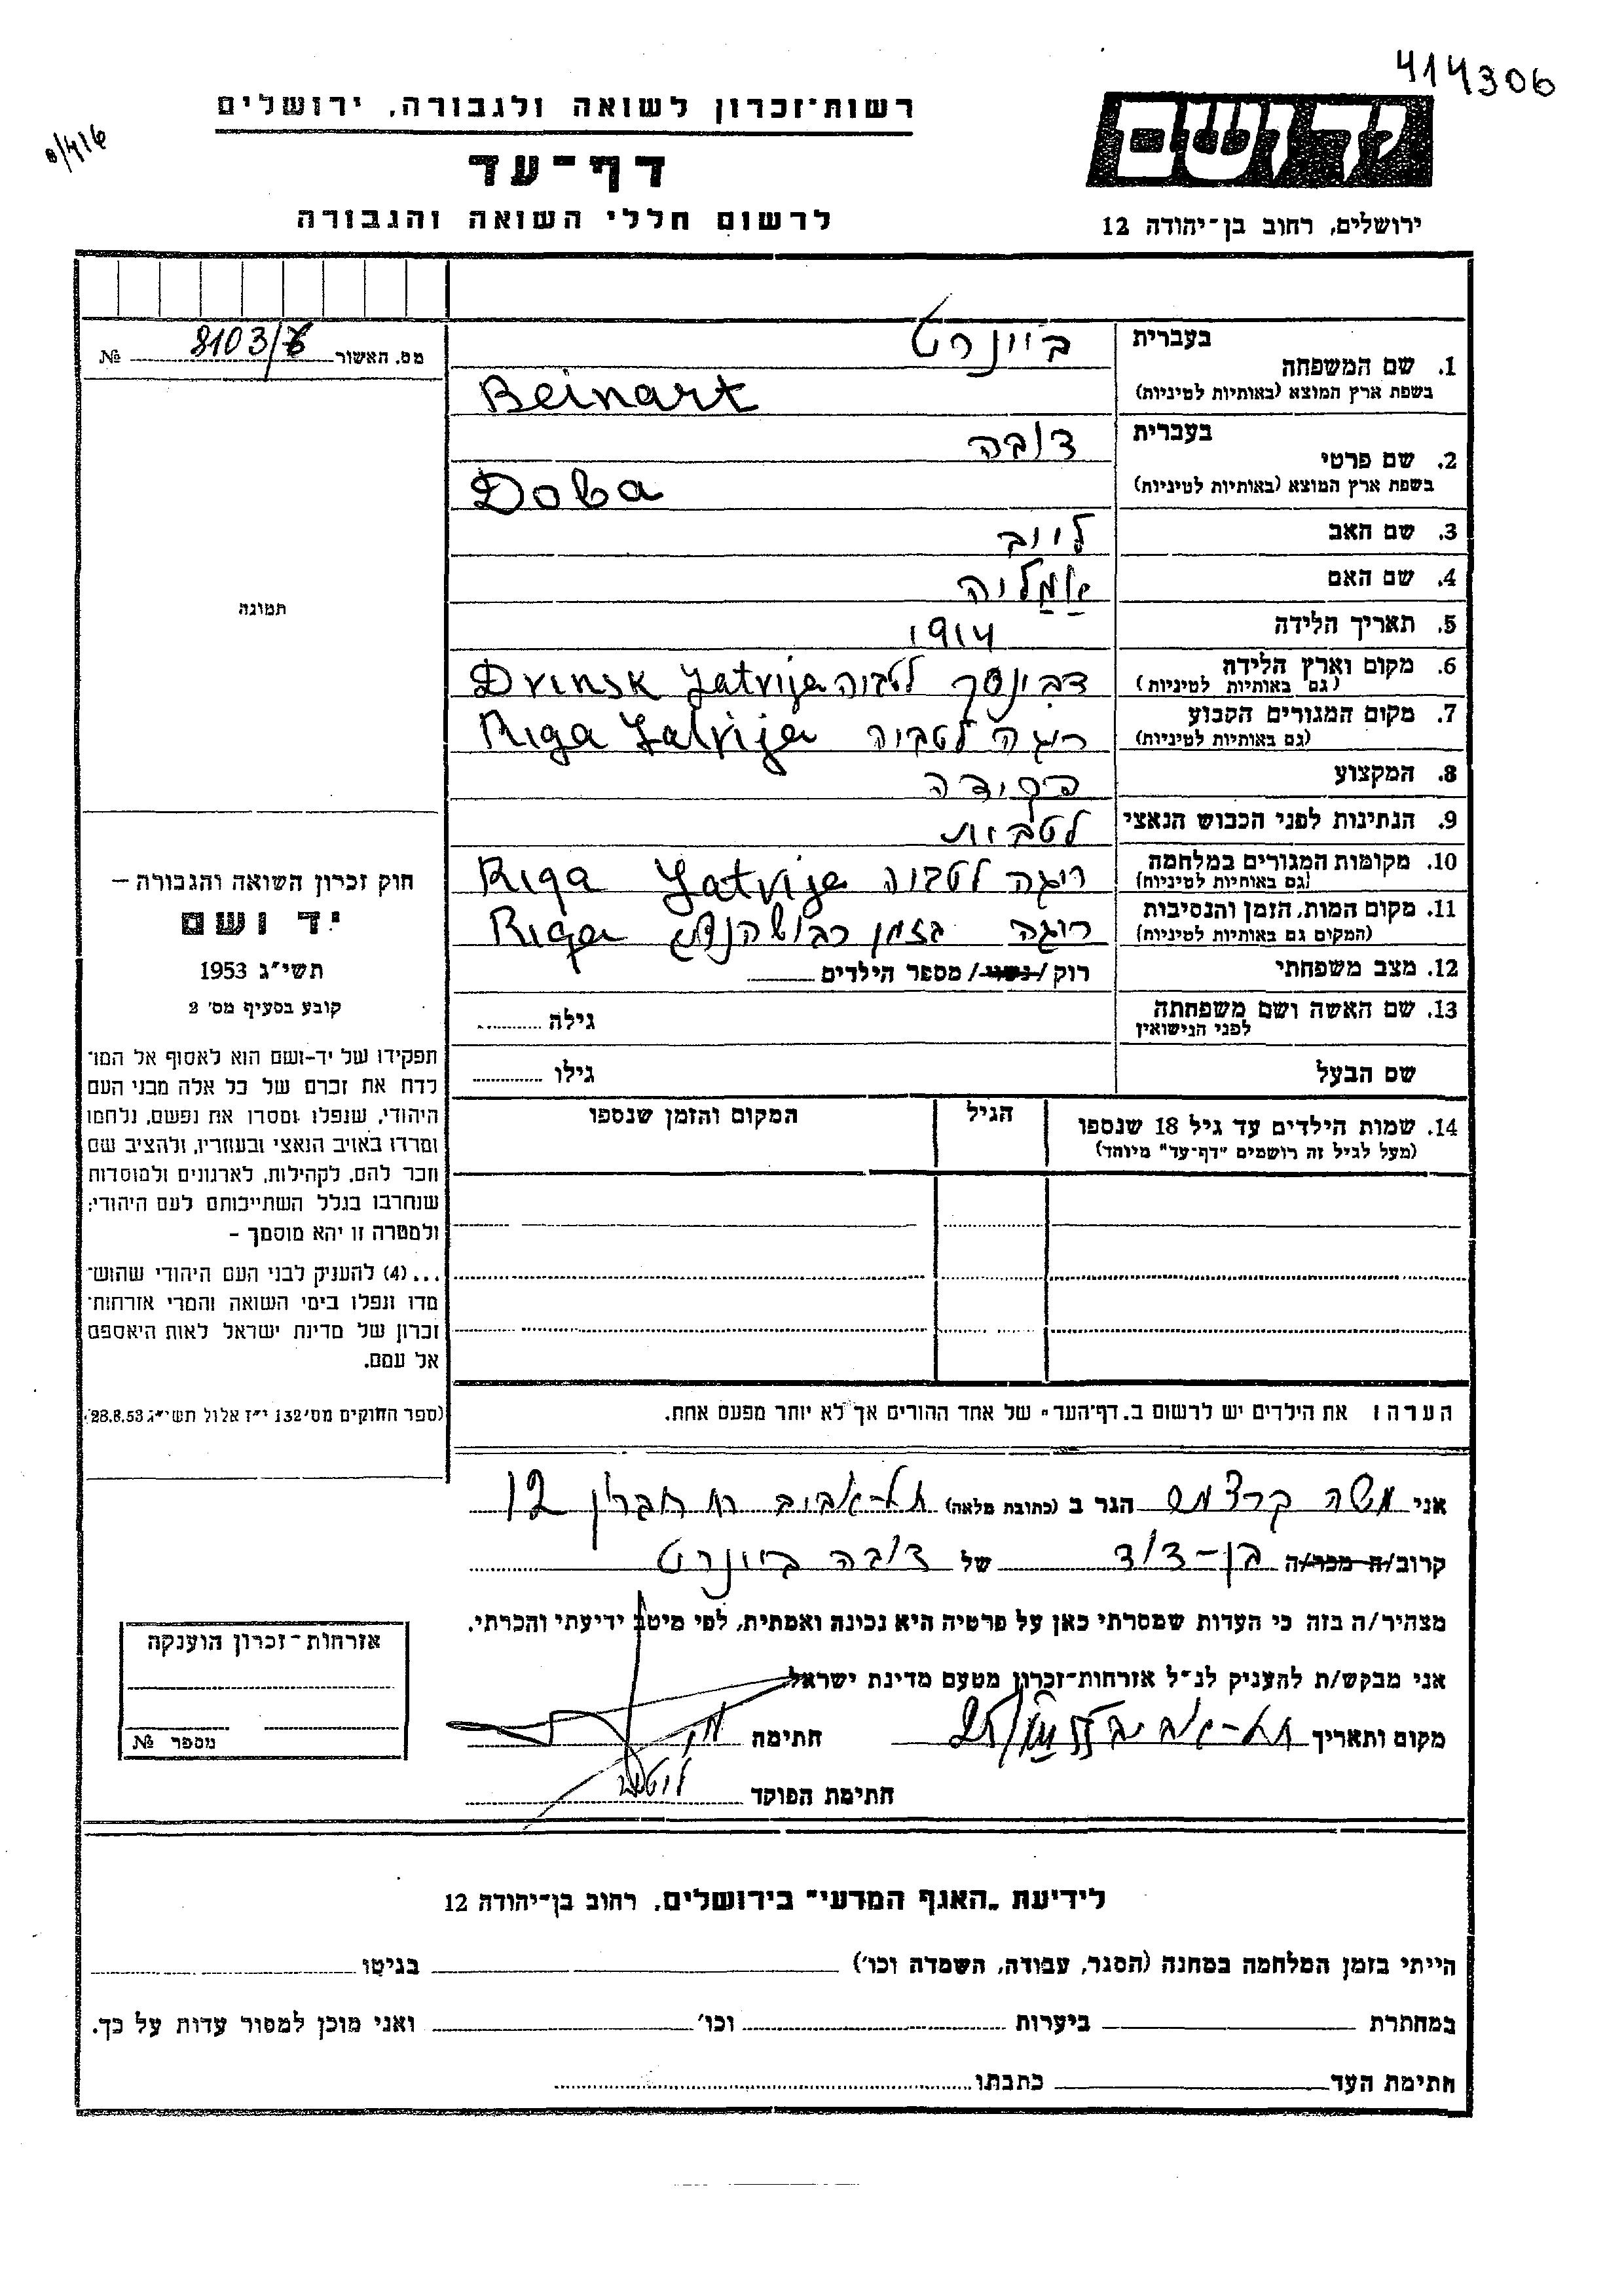 414306
8/416
רשות־זכרון לשואה ולגבורה, ירושלים
דף־עד
לרשום חללי השואה והגבורה
יד ושם
ירושלים, רחוב בן־יהודה 12
מס. האשור 8103/6 №
תמונה
חוק זכרון השואה והגבורה –
יד ושם
תשי״ג 1953
קובע בסעיף מס׳ 2
תפקידו של יד-ושם הוא לאסוף אל המו־
לדת את זכרם של כל אלה מבני העם
היהודי, שנפלו ומסרו את נפשם, נלחמו
ומרדו באויב הנאצי ובעוזריו, ולהציב שם
וזכר להם, לקהילות, לארגונים ולמוסדות
שנחרבו בגלל השתייכותם לעם היהודי;
ולמטרה זו יהא מוסמך –
...(4) להעניק לבני העם היהודי שהוש־
מדו ונפלו בימי השואה והמרי אזרחות־
זכרון של מדינת ישראל לאות היאספם
אל עמם.
(ספר החוקים מס׳ 132 י״ז אלול תשי״ג 28.8.53)
בעברית ביינרט
1. שם המשפחה
בשפת ארץ המוצא (באותיות לטיניות) Beinart
בעברית דובה
2. שם פרטי
בשפת ארץ המוצא (באותיות לטיניות) Doba
3. שם האב לייב
4. שם האם אמליה
5. תאריך הלידה 1914
6. מקום וארץ הלידה
(גם באותיות לטיניות) דבינסק לטביה Dvinsk Latvija
7. מקום המגורים הקבוע
(גם באותיות לטיניות) ריגה לטביה Riga Latvija
8. המקצוע פקידה
9. הנתינות לפני הכבוש הנאצי לטבית
10. מקומות המגורים במלחמה
(גם באותיות לטיניות) ריגה לטביה Riga Latvija
11. מקום המות, הזמן והנסיבות
(המקום גם באותיות לטיניות) ריגה בזמן כבוש הנאצי Riga
12. מצב משפחתי רוק / נשוי / מספר הילדים
13. שם האשה ושם משפחתה
לפני הנישואין גילה
שם הבעל גילו
14. שמות הילדים עד גיל 18 שנספו הגיל המקום והזמן שנספו
(מעל לגיל זה רושמים "דף־עד" מיוחד)
הערה: את הילדים יש לרשום ב„דף־העד" של אחד ההורים אך לא יותר מפעם אחת.
אני משה קרצמר הגר ב (כתובת מלאה) תל-אביב רח חברון 12
קרוב/ה מכר/ה בן-דוד של דובה ביינרט
מצהיר/ה בזה כי העדות שמסרתי כאן על פרטיה היא נכונה ואמתית, לפי מיטב ידיעתי והכרתי.
אני מבקש/ת להעניק לנ״ל אזרחות־זכרון מטעם מדינת ישראל.
מקום ותאריך תל-אביב חתימה
חתימת הפוקד
אזרחות־זכרון הוענקה
מספר №
לידיעת „האגף המדעי" בירושלים, רחוב בן־יהודה 12
הייתי בזמן המלחמה במחנה (הסגר, עבודה, השמדה וכו׳) בגיטו
במחתרת ביערות וכו׳ ואני מוכן למסור עדות על כך.
חתימת העד כתבתו